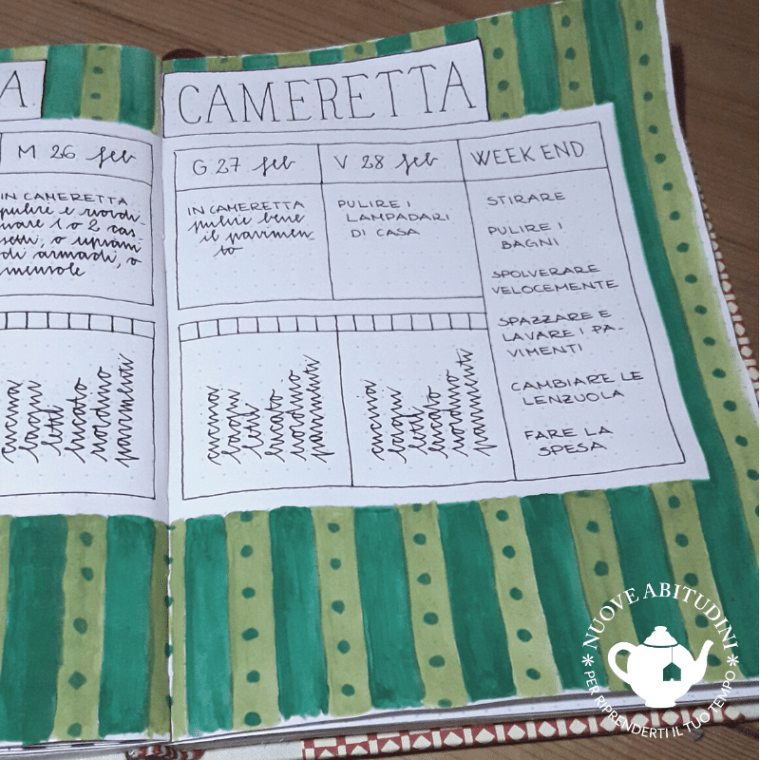 A
CAMERETTA
M 26 feb
G 27 feb
V 28 feb
WEEK END
IN CAMERETTA
pulire e riordi-
nare 1 o 2 cas
setti, o ripiani
di armadi, o
mensole
IN CAMERETTA
pulire bene
il pavimen
to
PULIRE I
LAMPADARI
DI CASA
STIRARE
PULIRE I
BAGNI
SPOLVERARE
VELOCEMENTE
SPAZZARE E
LAVARE I PA-
VIMENTI
CAMBIARE LE
LENZUOLA
FARE LA
SPESA
cucina
bagni
letti
bucato
riordino
pavimenti
cucina
bagni
letti
bucato
riordino
pavimenti
cucina
bagni
letti
bucato
riordino
pavimenti
NUOVE ABITUDINI
PER RIPRENDERTI IL TUO TEMPO